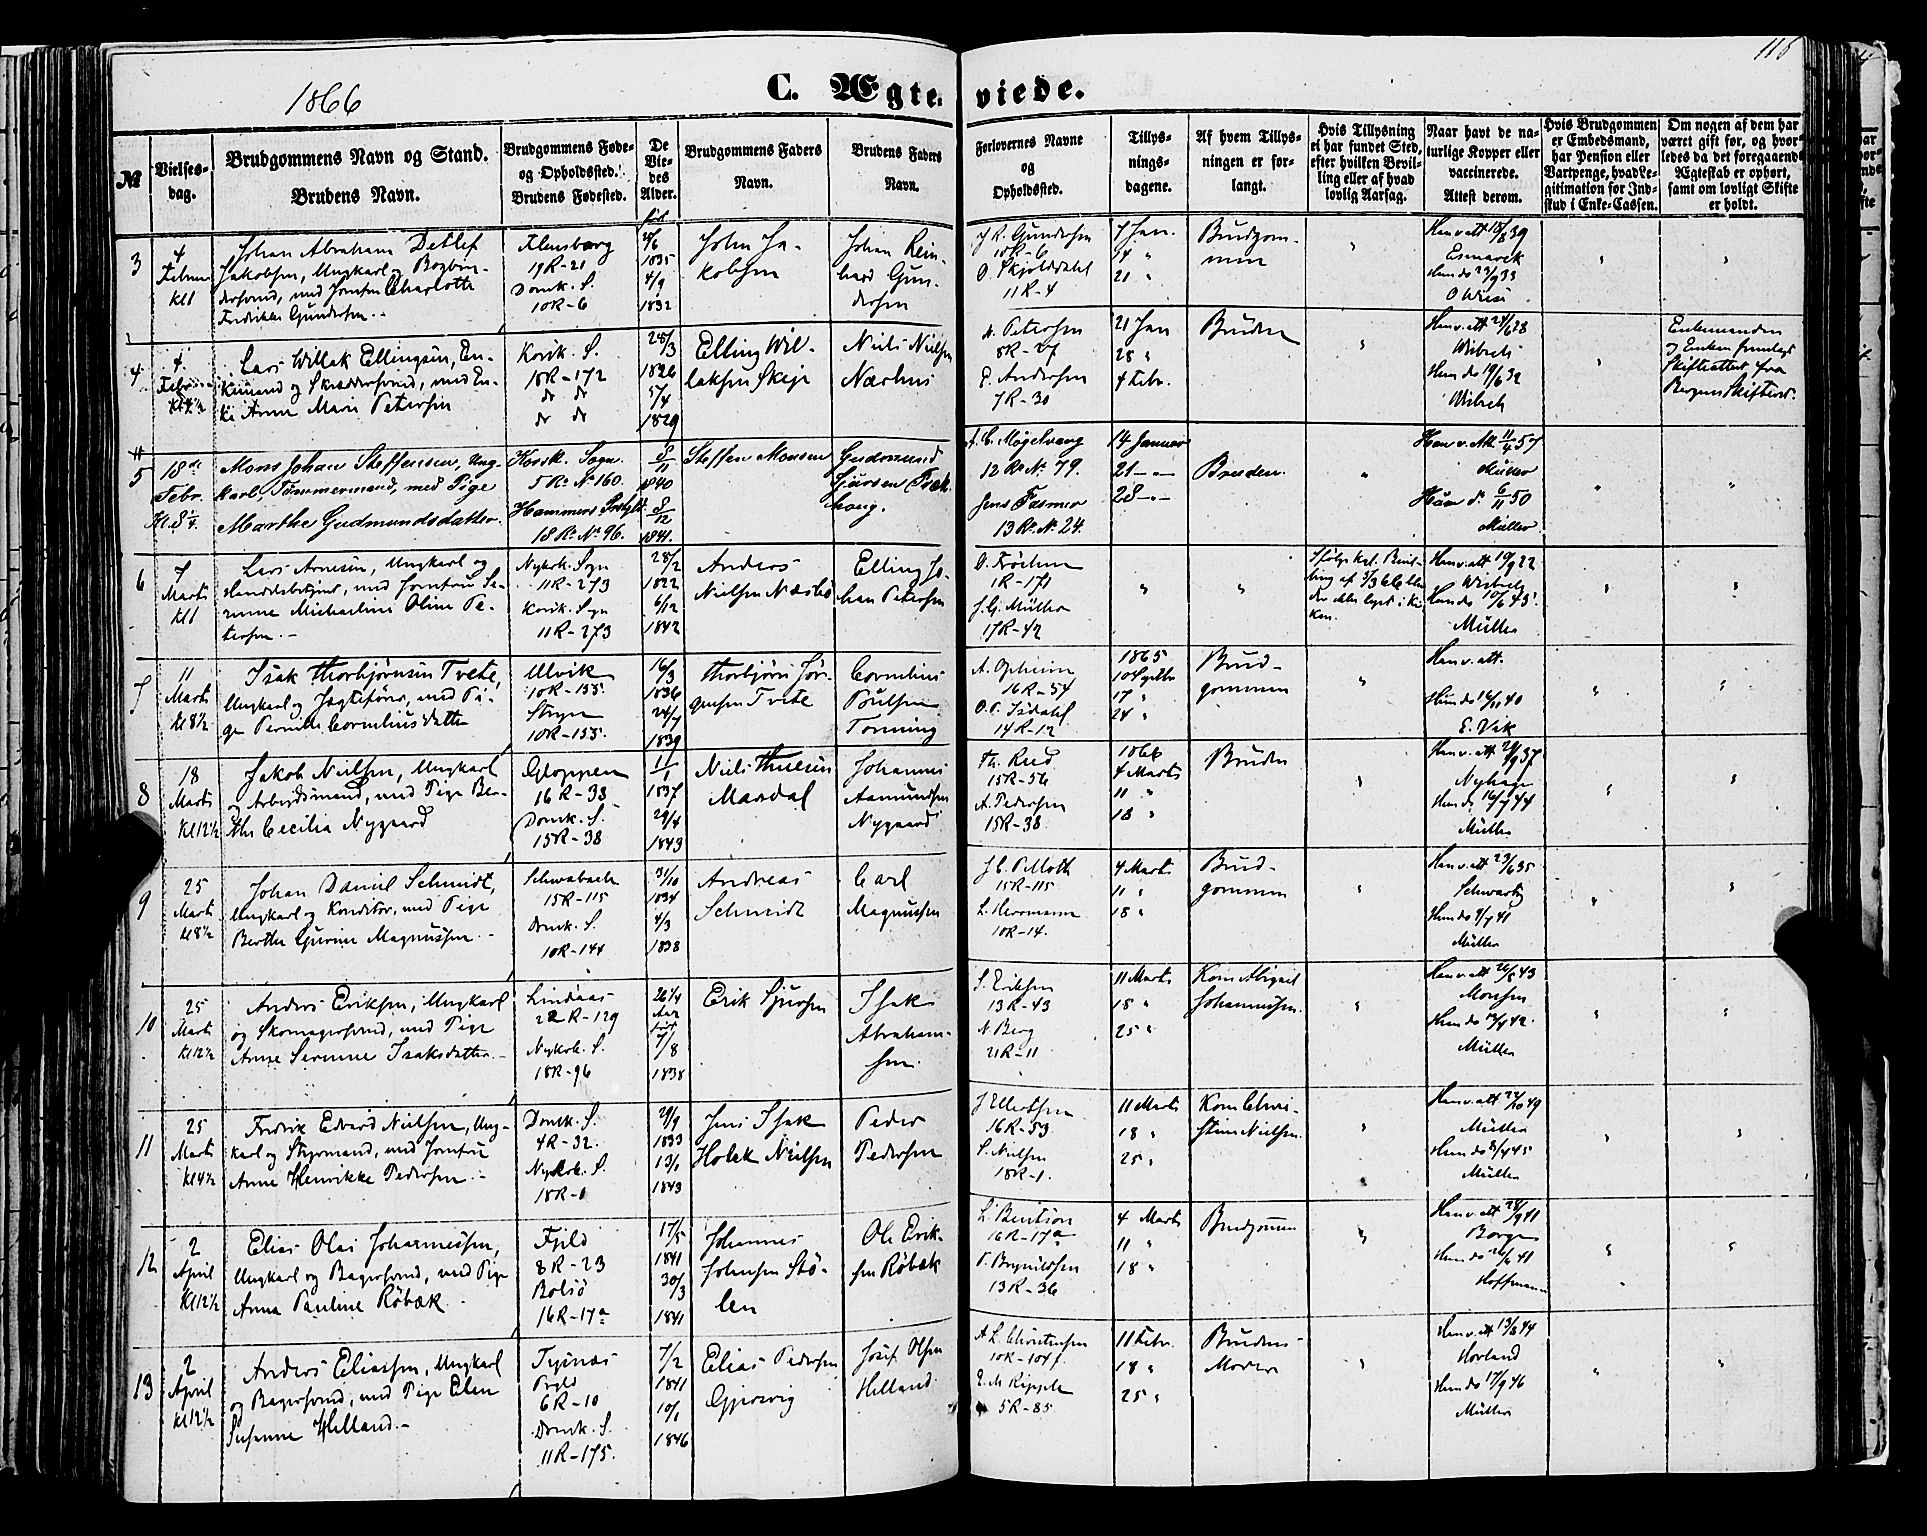 1866
C. Ægteviede.
116
№
Vielsesdag.
Brudgommens Navn og Stand.
Brudens Navn.
Brudgommens Føde- og Opholdssted.
Brudens Fødested.
De Viedes Alder.
Brudgommens Faders Navn.
Brudens Faders Navn.
Forlovernes Navne og Opholdssted.
Tillysningsdagene.
Af hvem Tillysningen er forlangt.
Hvis Tillysning ei har fundet Sted, efter hvilken Bevilling eller af hvad lovlig Aarsag.
Naar havt de naturlige Kopper eller vaccinerede. Attest derom.
Hvis Brudgommen er Embedsmand, har Pension eller Vartpenge, hvad Legitimation for Indskud i Enke-Cassen.
Om nogen af dem har været gift før, og hvorledes da det foregaaende Ægteskab er ophørt, samt om lovligt Skifte er holdt.
3
4 Februar Kl 1
Johan Abraham Detlef
Jakobsen, Ungkarl og Bogbin-
dersvend, med Jomfru Charlotte
Fredrikke Gundersen.
Flensborg
19R-21
Domk. S.
10R-6
1835
4/9
1832
John Ja-
kobsen
Johan Rein-
hard Gun-
dersen
J R. Gundersen
10R-6
O. Skjolddahl
11R-4
7 Jan.
14 "
21 "
Brudgom-
men
Han v. att 18/8 39
Esmarck
Hun do 23/9 33
O Wiese
4
4 Februar
Lars Willak Ellingsen, En-
kemand og Skræddersvend, med En-
ke Anne Marie Petersen
Korsk. S.
18R-172
do do
do do
28/3
1826
5/4
1829
Elling Wil-
laksen Skeje
Niels Nielsen
Nærhus
A. Petersen
8R-27
P. Andersen
7R-30
21 Jan
28 "
4 Febr.
Bruden
Han v. att 24/6 28
Wisbech
Hun do 19/6 32
Wisbech
Enkemanden
og Enken fremlagt
Skifteattest fra
Bergens Skifteret.
5
18de Febr. Kl. 8¼
Mons Johan Steffensen, Ung-
karl, Tømmermand, med Pige
Marthe Gudmundsdatter
Korsk. Sogn
5 R. N. 160.
Hammers Prstgld
18 R. N. 96.
8/11
1840
8/12
1841.
Steffen Monsen
Gudmund
Sjursen
houg.
A. C. Møgelvang
12 R. N. 79.
Jens Fasmer
13 R. N. 24.
14 Januar
21 - -
28 - -
Bruden.
Han v. Att. 11/4 57
Müller
Hun d. 6/11 50
Müller
6
7 Marts Kl 1
Lars Arnesen, Ungkarl og
Handelsbetjent, med Jomfru Se-
rine Michaeline Oline Pe-
tersen.
Nykrk. Sogn
11R-273
Korsk. Sogn
11R-273
28/2
1822
6/12
1842
Anders
Nielsen Næsbø
Elling Jo-
han Petersen
O. Frøchen
1R-171
J. G. Müller
17R-42
Ifølge kgl. Bevil-
ling af 3/3 66
Han v. att 19/9 22
Wisbech
Hun do 10/6 43
Müller
7
11 Marts Kl 8½
Isak Thorbjørnsen Tvete,
Ungkarl og Jægtefører, med Pi-
ge Pernille Corneliusdatter
Ulvik
10R-155
Stryn
10R-155.
16/3
1836
24/7
1839
Thorbjørn Jør-
gensen Tvete
Cornelius
Poulsen
Tonning
A. Opheim
16R-54
O. C. Isdahl
14R-12
1865
10 Septbr
17 "
24 "
Brud-
gommen
Han v. att.
Hun do 14/11 40
E. Vik
8
18 Marts Kl 12½
Jakob Nielsen, Ungkarl
og Arbeidsmand, med Pige Ber-
the Cecilia Nygaard
Gloppen
16R-38
Domk. S.
15R-38
11/1
1837
29/4
1843
Niels Thuesen
Mardal
Johannes
Aamundsen
Nygaard
Th. Rud
15R-56
A. Pedersen
15R-38
1866
4 Marts
11 "
18 "
Bruden
Müller
9
25 Marts Kl 8½
Johan Daniel Schmidt,
Ungkarl og Konditor, med Pige
Berthe Gurine Magnussen.
Schwabach
15R-115
Domk. S.
10R-144
31/10
1834
4/3
1838
Andreas
Schmidt
Carl
Magnussen
J C. P. Moth
15R-115
L. Herrmann
10R-14.
4 Marts
11 "
18 "
Brud-
gommen
Han v. att 23/6 35
Schwartz
Hun do 9/7 41
Müller
10
25 Marts Kl 12½
Anders Eriksen, Ungkarl
og Skomagersvend, med Pige
Anne Serenne Isaksdatter.
Lindaas
22R-129
Nykrk. S.
18R-96
26¼
Aar
født
7/8
1838
Erik Sjursen
Isak
Abraham-
sen
S. Eriksen
13R-43
N. Berg
21R-11
11 Marts
18 "
25 "
Kone Abigael
Johannessen.
Han v. att 26/8 43
Monsen
Müller
11
25 Marts Kl 4½
Fredrik Edvard Nielsen, Ung-
karl og Styrmand, med Jomfru
Anne Henrikke Pedersen.
Domk. S.
4R-32.
Nykrk. S.
18R-1
29/9
1833
13/1
1843
Jens Isak
Holck Nielsen
Peder
Pedersen
J Ellertsen
16R-53
S. Nielsen
18R-1.
11 Marts
18 "
25 "
Kone Chri-
stine Nielsen.
Han v. att 22/10 49
Müller
Hun do 8/4 45
Müller
12
2 April Kl 12½
Elias Olai Johannessen,
Ungkarl og Bagersvend, med Pige
Anna Pauline Røbæk.
Fjeld
8R-23
Bolsø
16R-17a
17/5
1841
30/3
1841
Johannes
Johnsen Stø-
len
Ole Erik-
sen Røbæk
L. Bentsen
16R-17a
P. Brynildsen
13R-36
4 Marts
11 "
18 "
Brudgommen
Han v. att 28/9 41
Borgen
Hoffmann
13
2 April Kl 12½
Anders Eliassen, Ungkarl
og Bagersvend, med Pige Elen
Susanne Helland.
Tysnæs
Prgld
6R-10
Domk. S.
11R-175.
7/2
1841
10/1
1846
Elias Pedersen
Gjersvig
Josef Olsen
Helland
A. L. Christensen
10R-104f.
5R-85
11 Febr.
18 "
25 "
Brudens
Moder
Han v. att 13/8 44
Horland
Hun do 17/9 46
Müller